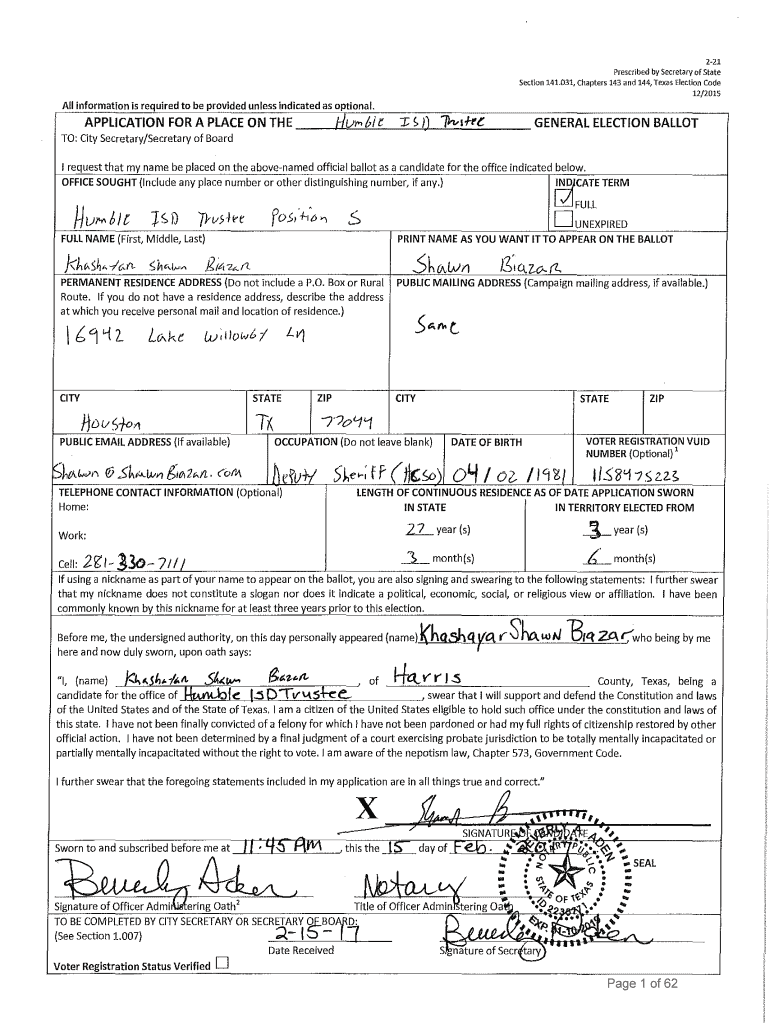 2-21
Prescribed by Secretary of State
Section 141.031, Chapters 143 and 144, Texas Election Code
12/2015
All information is required to be provided unless indicated as optional.
APPLICATION FOR A PLACE ON THE Humble ISD Trustee GENERAL ELECTION BALLOT
TO: City Secretary/Secretary of Board
I request that my name be placed on the above-named official ballot as a candidate for the office indicated below.
OFFICE SOUGHT (Include any place number or other distinguishing number, if any.) INDICATE TERM
✓ FULL
Humble ISD Trustee Position 5 UNEXPIRED
FULL NAME (First, Middle, Last) PRINT NAME AS YOU WANT IT TO APPEAR ON THE BALLOT
Khashayar Shawn Biazar Shawn Biazar
PERMANENT RESIDENCE ADDRESS (Do not include a P.O. Box or Rural PUBLIC MAILING ADDRESS (Campaign mailing address, if available.)
Route. If you do not have a residence address, describe the address
at which you receive personal mail and location of residence.)
16942 Lake Willowby Ln Same
CITY STATE ZIP CITY STATE ZIP
Houston TX 77044
PUBLIC EMAIL ADDRESS (If available) OCCUPATION (Do not leave blank) DATE OF BIRTH VOTER REGISTRATION VUID
NUMBER (Optional)1
Shawn@ShawnBiazar.com Deputy Sheriff (HCSO) 04/02/1981 1158475223
TELEPHONE CONTACT INFORMATION (Optional) LENGTH OF CONTINUOUS RESIDENCE AS OF DATE APPLICATION SWORN
Home: IN STATE IN TERRITORY ELECTED FROM
Work: 27 year (s) 3 year (s)
Cell: 281-330-7111 3 month(s) 6 month(s)
If using a nickname as part of your name to appear on the ballot, you are also signing and swearing to the following statements: I further swear
that my nickname does not constitute a slogan nor does it indicate a political, economic, social, or religious view or affiliation. I have been
commonly known by this nickname for at least three years prior to this election.
Before me, the undersigned authority, on this day personally appeared (name) Khashayar Shawn Biazar, who being by me
here and now duly sworn, upon oath says:
"I, (name) Khashayar Shawn Biazar, of Harris County, Texas, being a
candidate for the office of Humble ISD Trustee, swear that I will support and defend the Constitution and laws
of the United States and of the State of Texas. I am a citizen of the United States eligible to hold such office under the constitution and laws of
this state. I have not been finally convicted of a felony for which I have not been pardoned or had my full rights of citizenship restored by other
official action. I have not been determined by a final judgment of a court exercising probate jurisdiction to be totally mentally incapacitated or
partially mentally incapacitated without the right to vote. I am aware of the nepotism law, Chapter 573, Government Code.
I further swear that the foregoing statements included in my application are in all things true and correct."
X
SIGNATURE OF CANDIDATE
Sworn to and subscribed before me at 11:45 AM, this the 15 day of Feb.
SEAL
NOTARY PUBLIC
STATE OF TEXAS
Beverly Aden Notary
Signature of Officer Administering Oath2 Title of Officer Administering Oath
TO BE COMPLETED BY CITY SECRETARY OR SECRETARY OF BOARD:
(See Section 1.007) 2-15-17 Beverly Aden
Date Received Signature of Secretary
Voter Registration Status Verified
Page 1 of 62